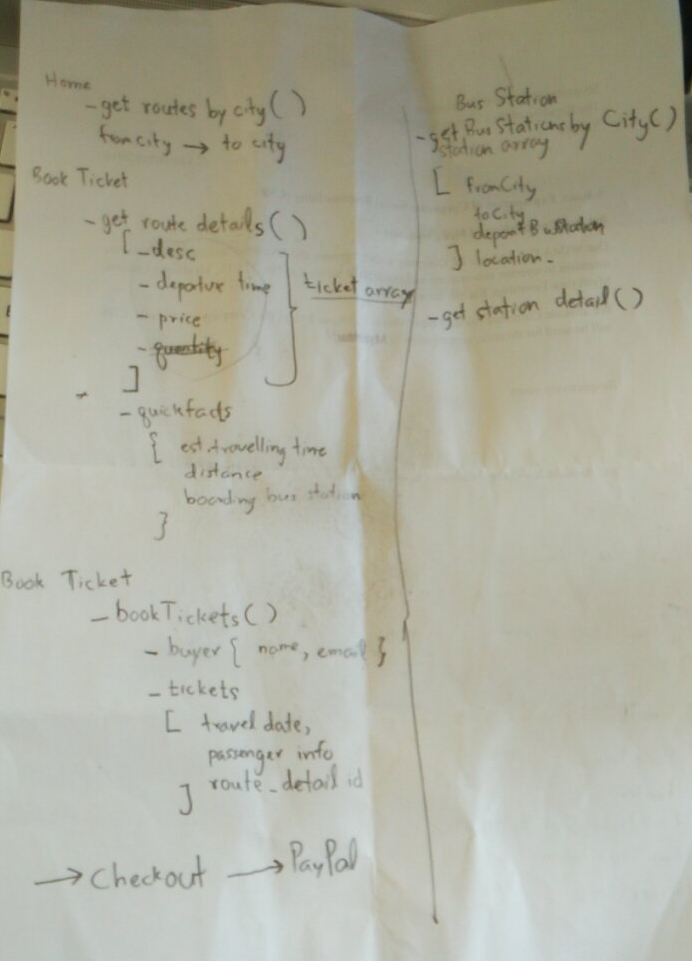 Home
- get routes by city()
from city → to city
Book Ticket
- get route details()
[ - desc
- departure time
- price
- quantity
]
ticket array
- quickfacts
{ est. travelling time
distance
boarding bus station
}
Book Ticket
- bookTickets()
- buyer { name, email }
- tickets
[ travel date,
passenger info
] route_detail id
→ Checkout → PayPal
Bus Station
- get Bus Stations by City()
station array
[ fromCity
toCity
depart Bus Station
] location.
- get station detail()